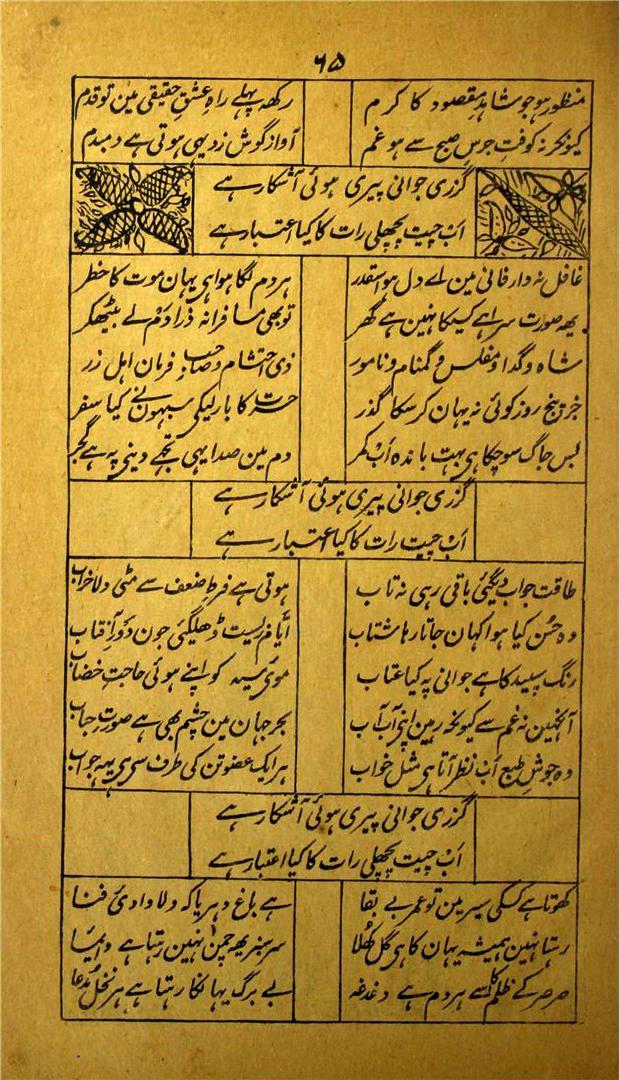 ٦٥
منظور ہو جو شاہد مقصود کا کرم رکھہ پہلے راہ عشق حقیقی مین تو قدم
کیونکر نہ کوفت جرس صبح سے ہو غم آواز گوش زد یہی ہوتی ہے دمبدم
گزری جوانی پیری ہوئی آشکار ہے
اب چیت پچھلی رات کا کیا اعتبار ہے
غافل نہ دار فانی مین اے دل ہو اسقدر ہر دم لگا ہوا ہی یہان موت کا خطر
یھہ صورت سرا ہے کسیکا نہین ہے گھر تو بھی مسافرانہ ذرا دم لے بیٹھکر
شاہ و گدا و مفلس و گمنام و نامور ذی احتشام و صاحب فرمان اہل زر
جز پنج روز کوئی نہ یہان کر سکا گذر حسرت کا بار لیکے سبہون نے کیا سفر
بس جاگ سو چکا ہی بہت باندہ اب کمر دم مین صدا یہی تجھے دینی پہ ہے گجر
گزری جوانی پیری ہوئی آشکار ہے
اب چیت رات کا کیا اعتبار ہے
طاقت جواب دیگئی باقی رہی نہ تاب ہوتی ہے فرط ضعف سے مٹی دلا خراب
وہ حسن کیا ہوا کہان جاتا رہا شتاب ایام زیست ڈھلگئی جون دور آفتاب
رنگ سپید کا ہے جوانی پہ کیا عتاب موی سیہ کو اپنے ہوئی حاجت خضاب
آنکھین نہ غم سے کیونکہ رہین اپنی آب آب بحر جہان مین چشم بھی ہے صورت حباب
وہ جوش طبع اب نظر آتا ہی مثل خواب ہر ایک عضو تن کی طرف سی ہی یہہ جواب
گزری جوانی پیری ہوئی آشکار ہے
اب چیت پچھلی رات کا کیا اعتبار ہے
کھوتا ہے کسکی سیر مین تو عمر بے بقا ہے باغ دہر یا کہ دلا وادی فنا
رہتا نہین ہمیشہ یہان کا ہی گل کھلا سرسبز یھہ چمن نہین رہتا ہے دایما
صرصر کے ظلم کا اسے ہر دم ہے دغدغہ بے برگ یہانکا رہتا ہے ہر نخل مدعا